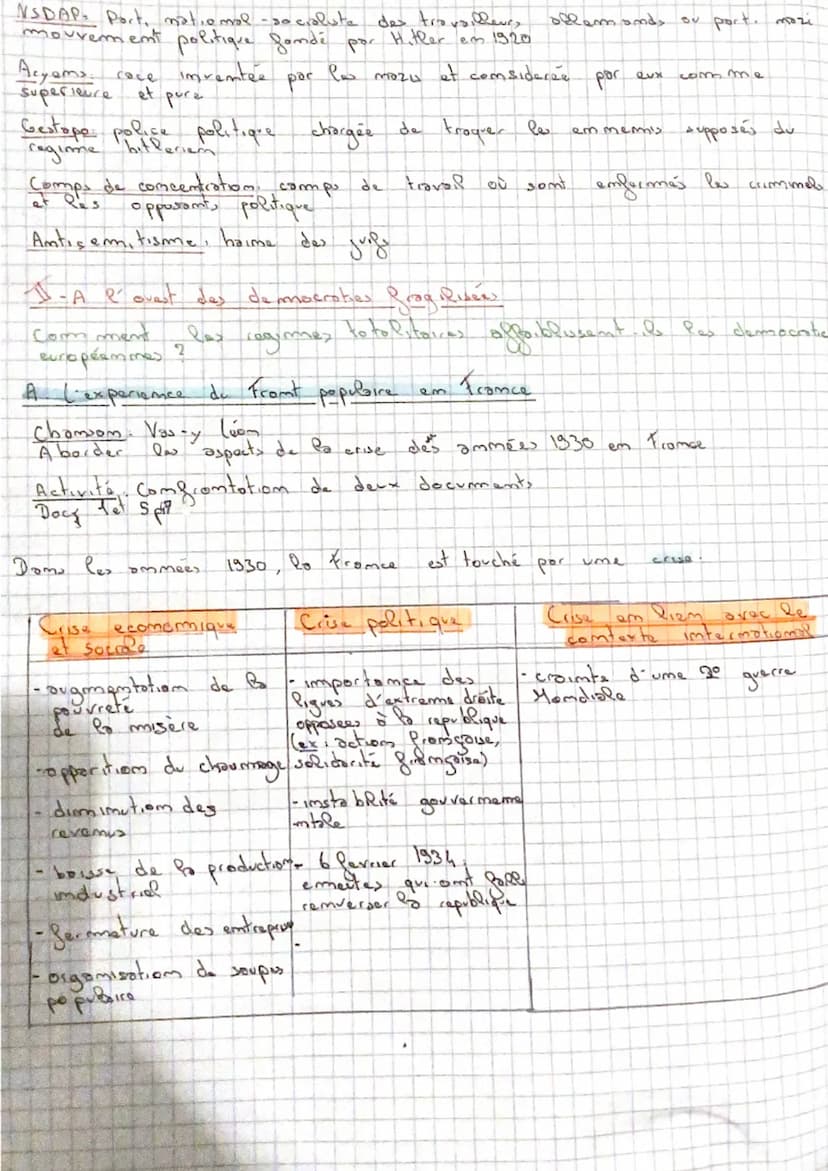 NSDAP: Parti national-socialiste des travailleurs allemands ou parti nazi
mouvement politique fondé par Hitler en 1920
Aryens: race inventée par les nazis et considerée par eux comme
superieure et pure
Gestapo: police politique chargée de traquer les ennemis supposés du
regime hitlerien
Camps de concentration: camps de travail où sont enfermés les criminels
et les opposants politique
Antisemitisme: haine des juifs
II-A l'ouest des democraties fragilisées
Comment les regimes totalitaires affaiblissent-ils les democratie
européennes ?
A L'experience du Front populaire en France
Chanson: Vas-y Léon
Aborder les aspects de la crise des années 1930 en France
Activité: Confrontation de deux documents
Doc 1 et 5 p
Dans les années 1930, la France est touché par une crise.
Crise economique
et sociale
- augmentation de la
pauvreté
de la misère
- apparition du chaumage
- diminution des
revenus
- baisse de la production
industriel
- fermeture des entreprises
- organisation de soupes
populaire
Crise politique
- importance des
ligues d'extreme droite
opposees à la republique
(ex: action française,
solidarité française)
- instabilité gouverneme
ntale
- 6 fevrier 1934:
emeutes qui ont failli
renverser la republique
Crise en lien avec le
contexte international
- crainte d'une 2e guerre
Mondiale